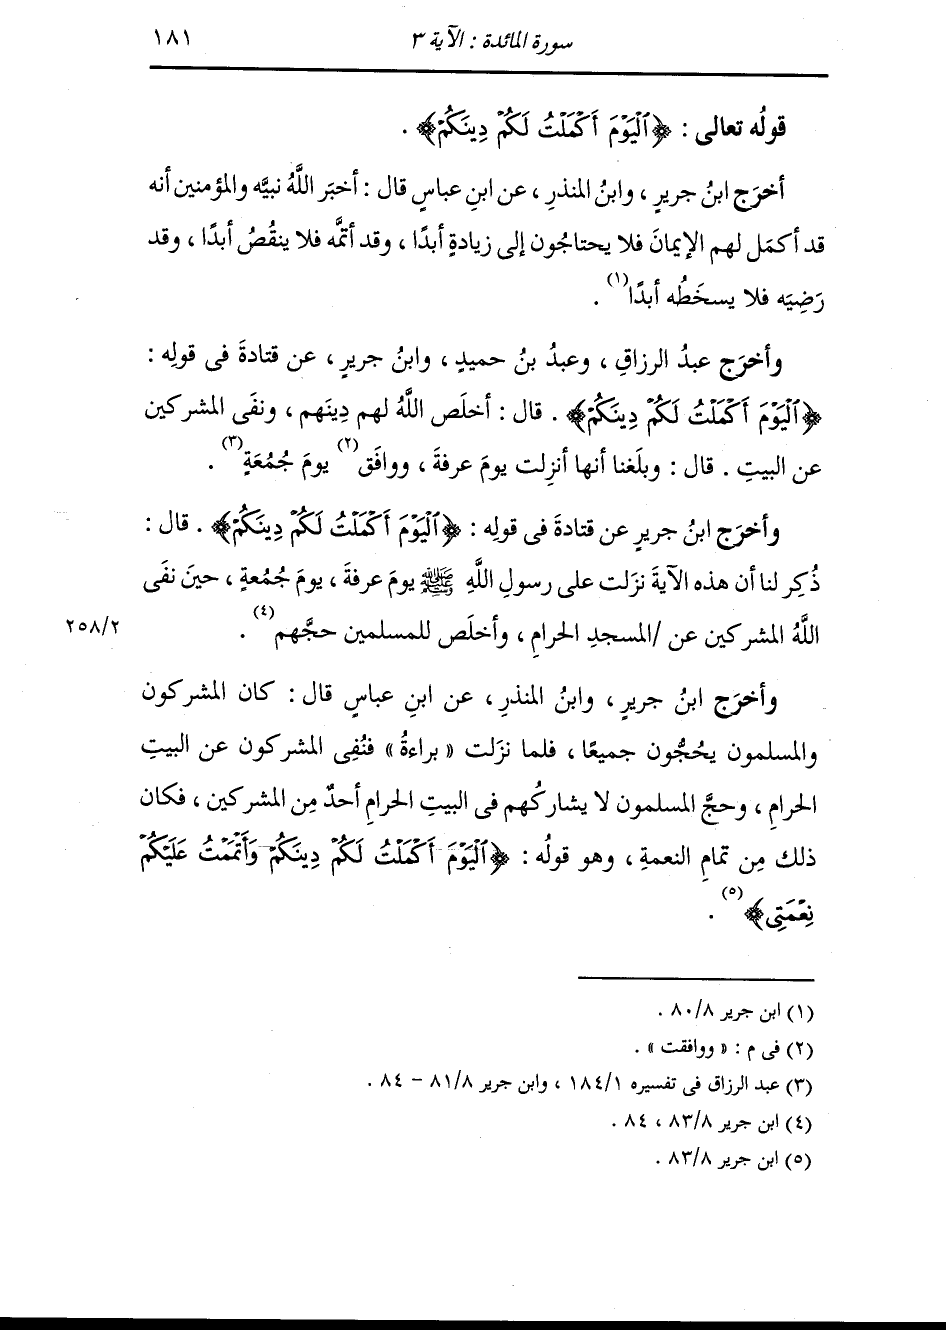 سورة المائدة : الآية ٣ ١٨١
قولُه تعالى : ﴿ ٱلْيَوْمَ أَكْمَلْتُ لَكُمْ دِينَكُمْ ﴾ .
أخرَج ابنُ جريرٍ ، وابنُ المنذرِ ، عن ابنِ عباسٍ قال : أخبَر اللَّهُ نبيَّه والمؤمنين أنه
قد أكمَل لهم الإيمانَ فلا يحتاجُون إلى زيادةٍ أبدًا ، وقد أتمَّه فلا ينقُصُ أبدًا ، وقد
رَضِيَه فلا يسخَطُه أبدًا (١) .
وأخرَج عبدُ الرزاقِ ، وعبدُ بنُ حميدٍ ، وابنُ جريرٍ ، عن قتادةَ فى قولِه :
﴿ ٱلْيَوْمَ أَكْمَلْتُ لَكُمْ دِينَكُمْ ﴾ . قال : أخلَص اللَّهُ لهم دِينَهم ، ونفَى المشركين
عن البيتِ . قال : وبلَغنا أنها أنزِلت يومَ عرفةَ ، ووافَق (٢) يومَ جُمُعَةٍ (٣) .
وأخرَج ابنُ جريرٍ عن قتادةَ فى قولِه : ﴿ ٱلْيَوْمَ أَكْمَلْتُ لَكُمْ دِينَكُمْ ﴾ . قال :
ذُكِر لنا أن هذه الآيةَ نزَلت على رسولِ اللَّهِ ﷺ يومَ عرفةَ ، يومَ جُمُعةٍ ، حينَ نفَى
اللَّهُ المشركين عن /المسجدِ الحرامِ ، وأخلَص للمسلمين حجَّهم (٤) .
٢٥٨/٢
وأخرَج ابنُ جريرٍ ، وابنُ المنذرِ ، عن ابنِ عباسٍ قال : كان المشركون
والمسلمون يحُجُّون جميعًا ، فلما نزَلت « براءةُ » فنُفِى المشركون عن البيتِ
الحرامِ ، وحجَّ المسلمون لا يشاركُهم فى البيتِ الحرامِ أحدٌ مِن المشركين ، فكان
ذلك مِن تمامِ النعمةِ ، وهو قولُه : ﴿ ٱلْيَوْمَ أَكْمَلْتُ لَكُمْ دِينَكُمْ وَأَتْمَمْتُ عَلَيْكُمْ
نِعْمَتِى ﴾ (٥) .
(١) ابن جرير ٨٠/٨ .
(٢) فى م : « ووافقت » .
(٣) عبد الرزاق فى تفسيره ١٨٤/١ ، وابن جرير ٨١/٨ - ٨٤ .
(٤) ابن جرير ٨٣/٨ ، ٨٤ .
(٥) ابن جرير ٨٣/٨ .